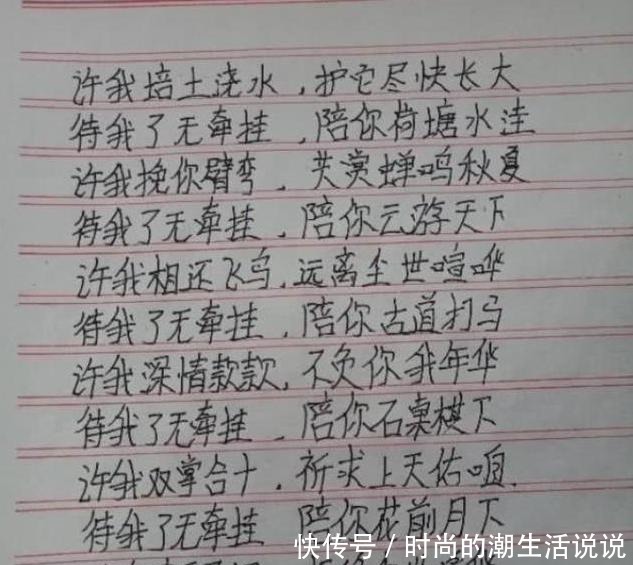 许我培土浇水，护它尽快长大
待我了无牵挂，陪你荷塘水洼
许我挽你臂弯，共赏蝉鸣秋夏
待我了无牵挂，陪你云游天下
许我相还飞鸟，远离尘世喧哗
待我了无牵挂，陪你古道打马
许我深情款款，不负你我年华
待我了无牵挂，陪你石桌棋下
许我双掌合十，祈求上天佑咱.
待我了无牵挂 陪你花前月下
快传号/时尚的潮生活说说